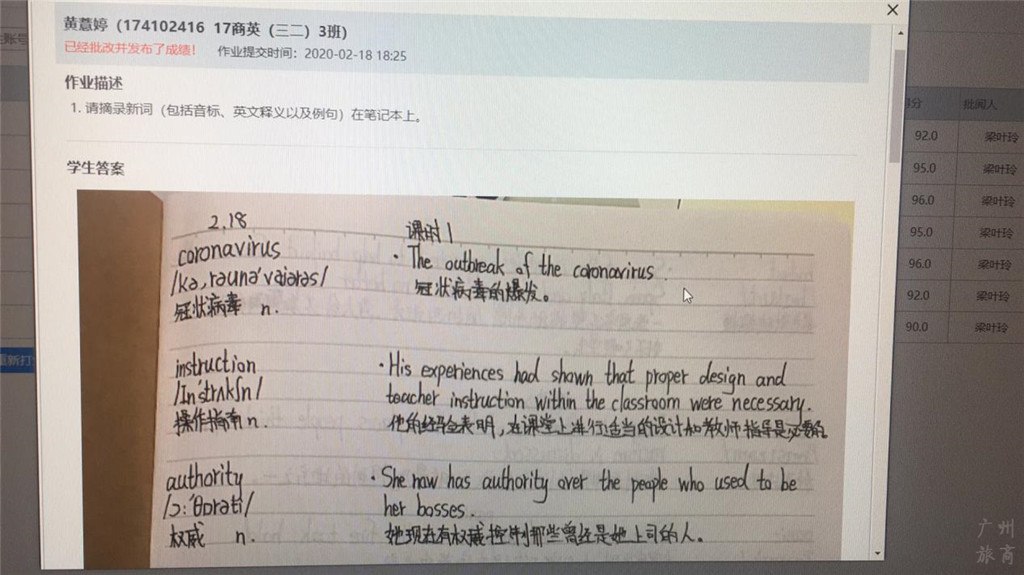 黄薏婷（174102416 17商英（三二）3班）
已经批改并发布了成绩！ 作业提交时间：2020-02-18 18:25
作业描述
1. 请摘录新词（包括音标、英文释义以及例句）在笔记本上。
学生答案
批阅人
92.0 梁叶玲
95.0 梁叶玲
96.0 梁叶玲
95.0 梁叶玲
96.0 梁叶玲
92.0 梁叶玲
90.0 梁叶玲
重新打
2.18 课时1
coronavirus
/kəˌrəʊnəˈvaɪərəs/
冠状病毒 n.
· The outbreak of the coronavirus
冠状病毒的爆发。
instruction
/ɪnˈstrʌkʃn/
操作指南 n.
· His experiences had shown that proper design and
teacher instruction within the classroom were necessary.
他的经验表明，在课堂上进行适当的设计和教师指导是必要的
authority
/ɔːˈθɒrəti/
权威 n.
· She now has authority over the people who used to be
her bosses.
她现在有权威控制那些曾经是她上司的人。
广州
旅商